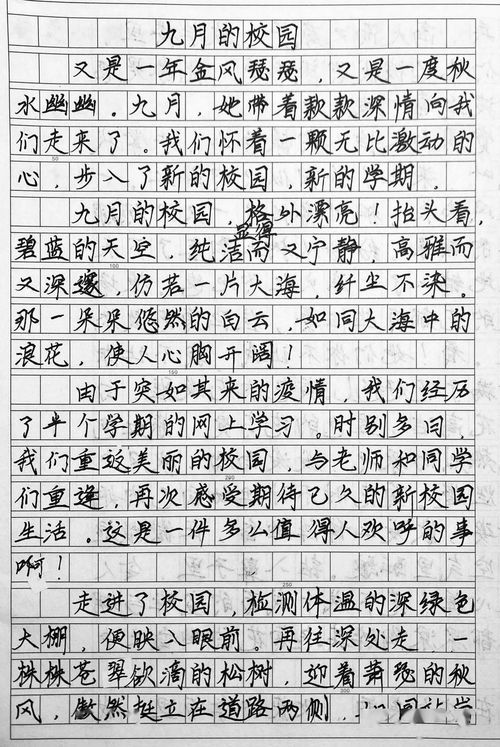 九月的校园
又是一年金风瑟瑟，又是一度秋
水幽幽。九月，她带着款款深情向我
们走来了。我们怀着一颗无比激动的
心，步入了新的校园，新的学期。
九月的校园，格外漂亮！抬头看，
显得
碧蓝的天空，纯洁而又宁静，高雅而
又深邃，仿若一片大海，纤尘不染。
那一朵朵悠然的白云，如同大海中的
浪花，使人心胸开阔！
由于突如其来的疫情，我们经历
了半个学期的网上学习。时别多日，
我们重返美丽的校园，与老师和同学
们重逢，再次感受期待已久的新校园
生活。这是一件多么值得人欢呼的事
啊！
走进了校园，检测体温的深绿色
大棚，便映入眼前。再往深处走，一
株株苍翠欲滴的松树，迎着萧瑟的秋
风，傲然挺立在道路两侧，